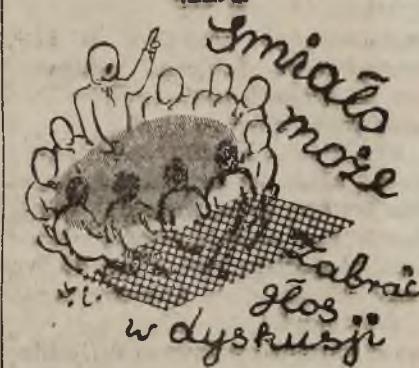 Śmiało
może
zabrać
głos
w dyskusji